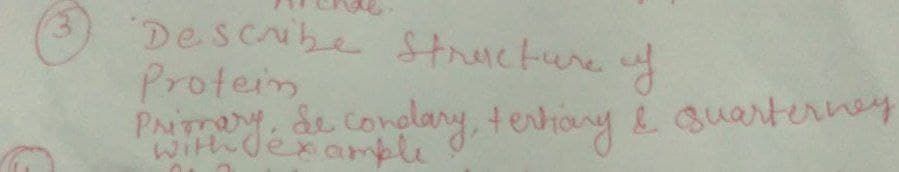 3 Describe structure of
Protein
Primary, Secondary, tertiary & Quarterney
with example.